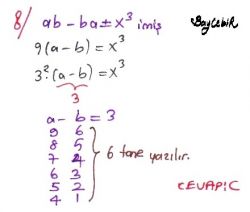 8/ ab - ba ± x³ imiş
BayCebir
9(a-b) = x³
3²·(a-b) = x³
3
a - b = 3
9 6
8 5
7 4
6 3
5 2
4 1
6 tane yazılır.
CEVAP:C